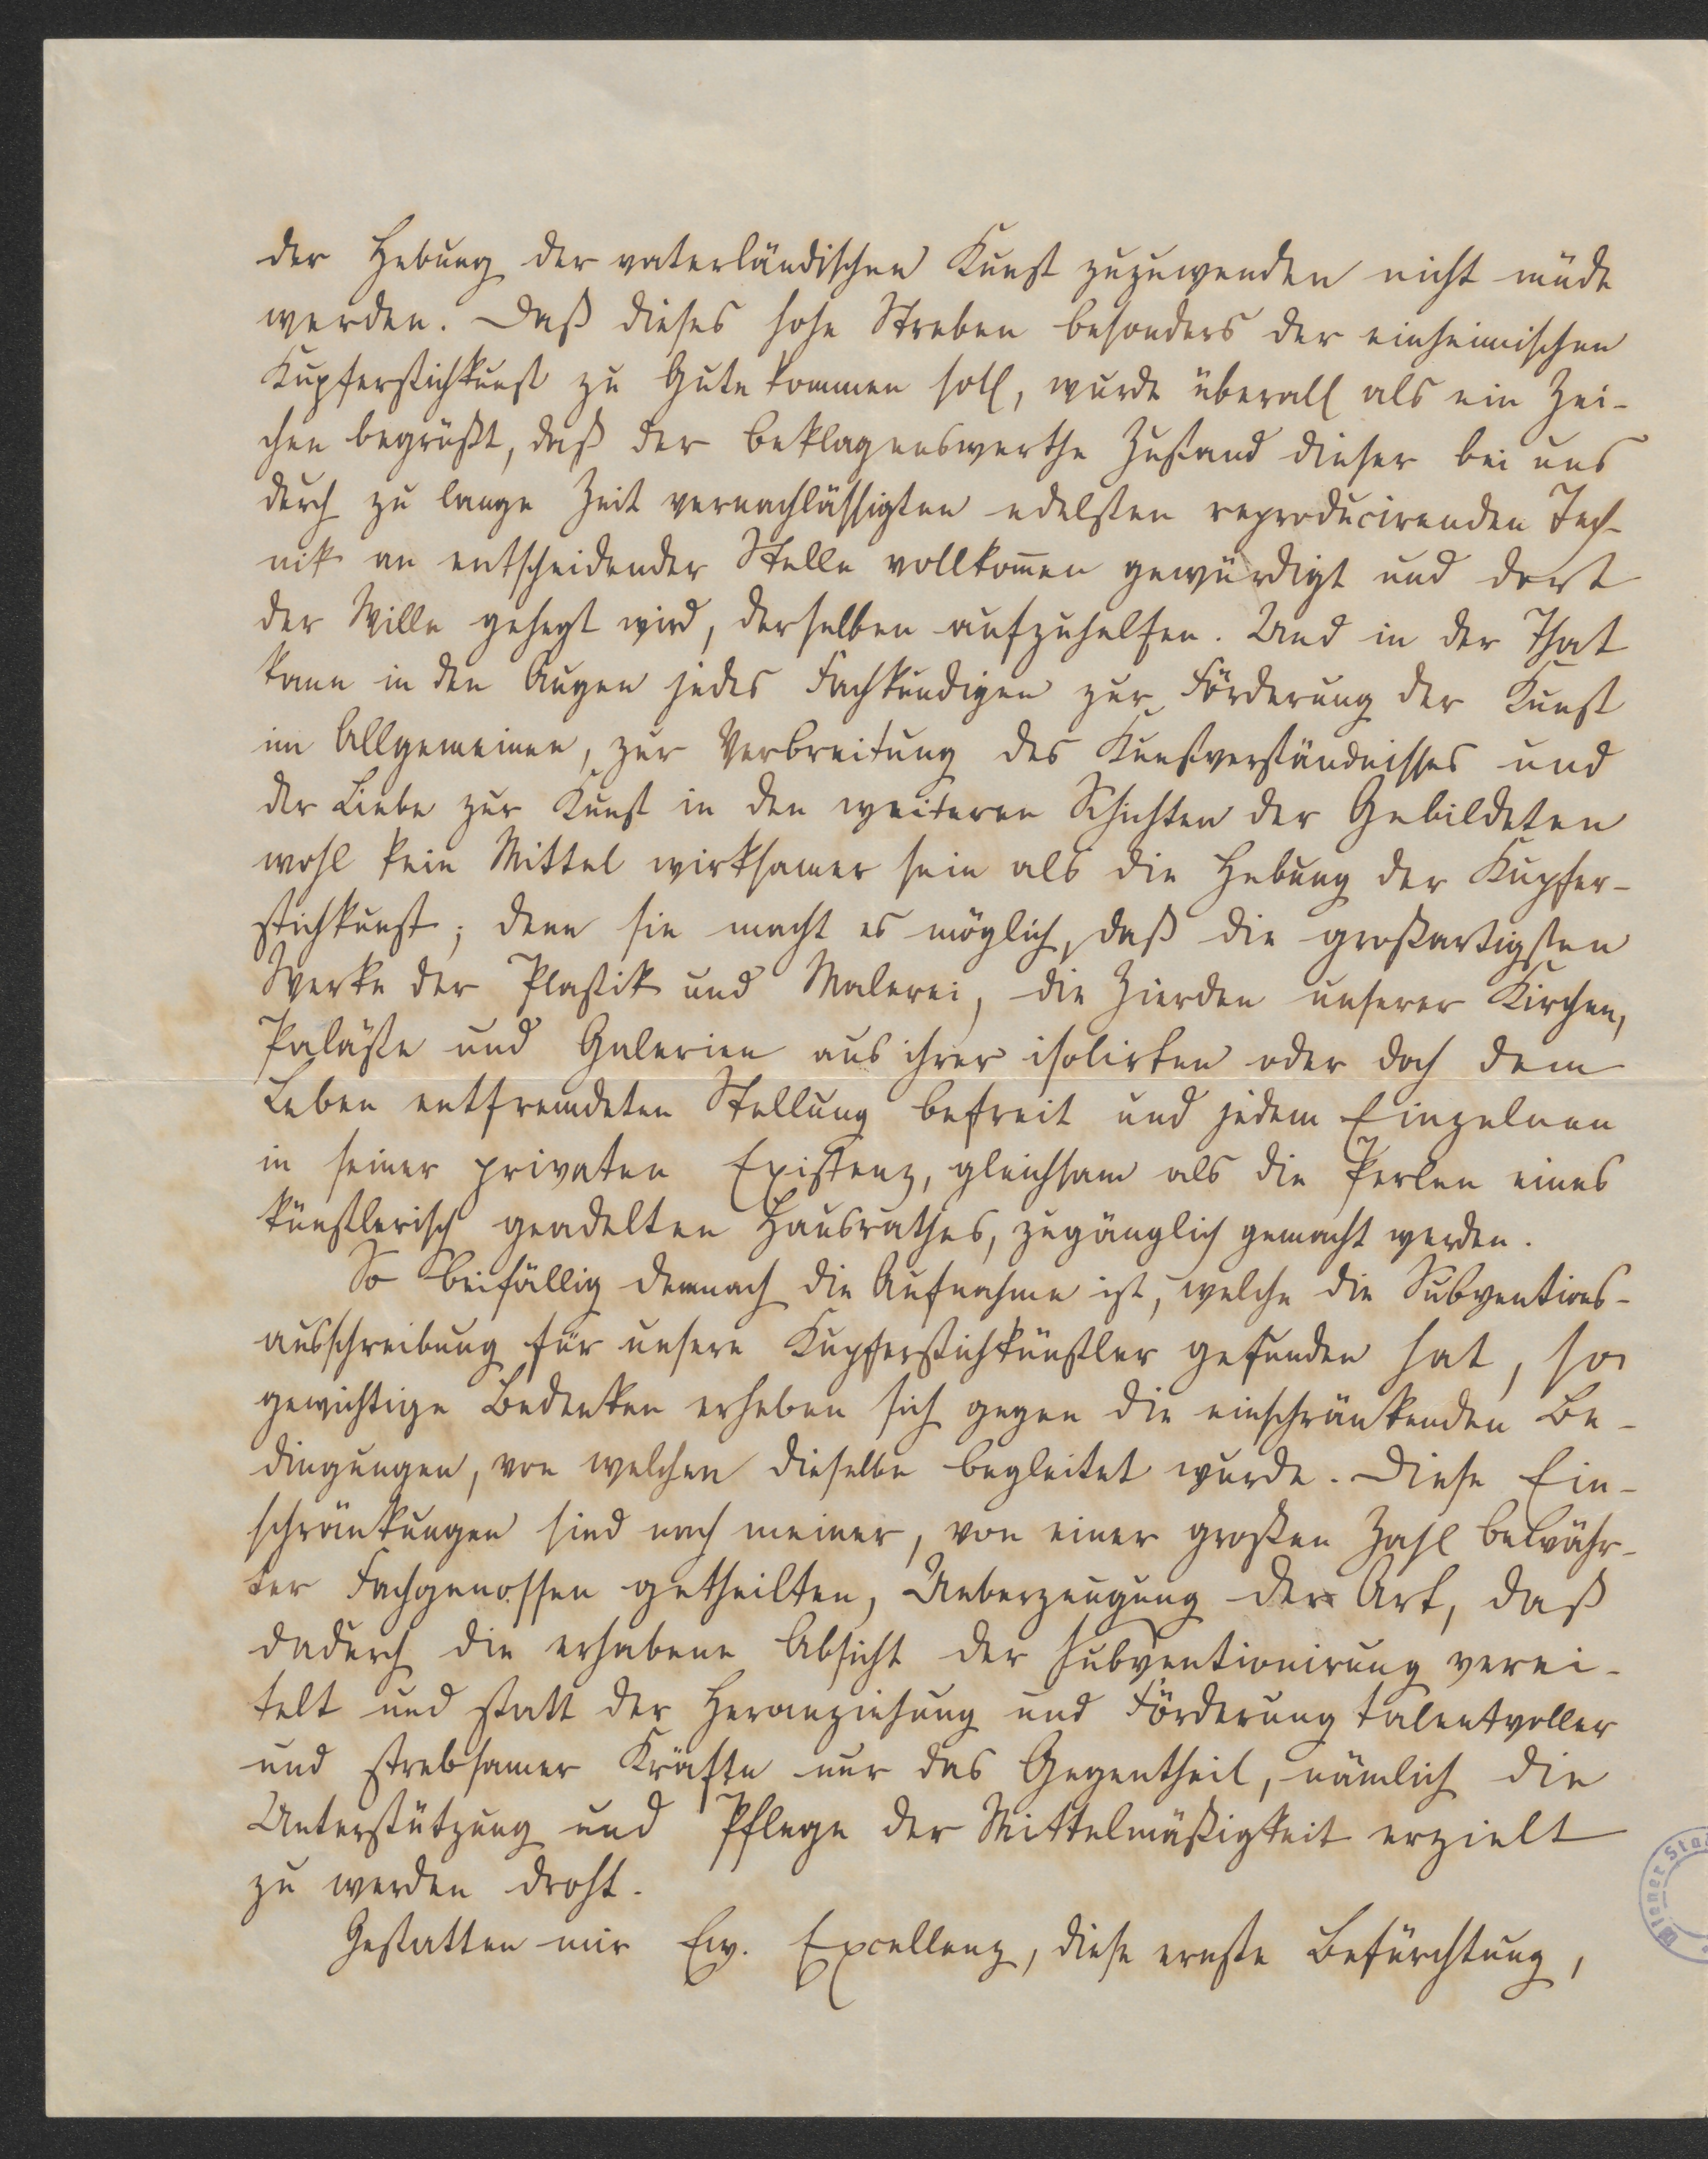 der Hebung der vaterländischen Kunst zuzuwenden nicht müde
werden. Daß dieses hohe Streben besonders der einheimischen
Kupferstichkunst zu Gute kommen soll, wurde überall als ein Zei-
chen begrüßt, daß der beklagenswerthe Zustand dieser bei uns
durch zu lange Zeit vernachlässigten edelsten reproducirenden Tech-
nik an entscheidender Stelle vollkom̅en gewürdigt und dort
der Wille gehegt wird, derselben aufzuhelfen. Und in der That
kann in den Augen jedes Fachkundigen zur Förderung der Kunst
im Allgemeinen, zur Verbreitung des Kunstverständnisses und
der Liebe zur Kunst in den weiteren Schichten der Gebildeten
wohl kein Mittel wirksamer sein als die Hebung der Kupfer-
stichkunst; denn sie macht es möglich, daß die großartigsten
Werke der Plastik und Malerei, die Zierden unserer Kirchen,
Paläste und Galerien aus ihrer isolirten oder doch dem
Leben entfremdeten Stellung befreit und jedem Einzelnen
in seiner privaten Existenz, gleichsam als die Perlen eines
künstlerisch geadelten Hausrathes, zugänglich gemacht werden.
So beifällig demnach die Aufnahme ist, welche die Subventions-
ausschreibung für unsere Kupferstichkünstler gefunden hat, so
gewichtige Bedenken erheben sich gegen die einschränkenden Be-
dingungen, von welchen dieselbe begleitet wurde. Diese Ein-
schränkungen sind nach meiner, von einer großen Zahl bewähr-
ter Fachgenossen getheilten, Ueberzeugung der Art, daß
dadurch die erhabene Absicht der Subventionirung verei-
telt und statt der Heranziehung und Förderung talentvoller
und strebsamer Kräfte nur das Gegentheil, nämlich die
Unterstützung und Pflege der Mittelmäßigkeit erzielt
zu werden droht.
Gestatten mir Ew. Excellenz, diese ernste Befürchtung,
Wiener Sta